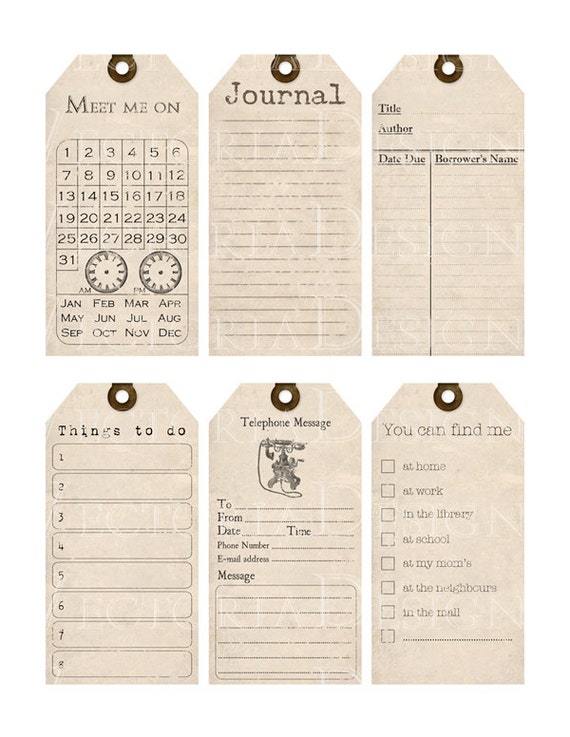 Meet me on
1 2 3 4 5 6
7 8 9 10 11 12
13 14 15 16 17 18
19 20 21 22 23 24
25 26 27 28 29 30
31
AM PM
Jan Feb Mar Apr
May Jun Jul Aug
Sep Oct Nov Dec
Journal
Title
Author
Date Due Borrower's Name
Things to do
1
2
3
4
5
6
7
8
Telephone Message
To
From
Date Time
Phone Number
E-mail address
Message
You can find me
at home
at work
in the library
at school
at my mom's
at the neighbours
in the mall
Victoria Design